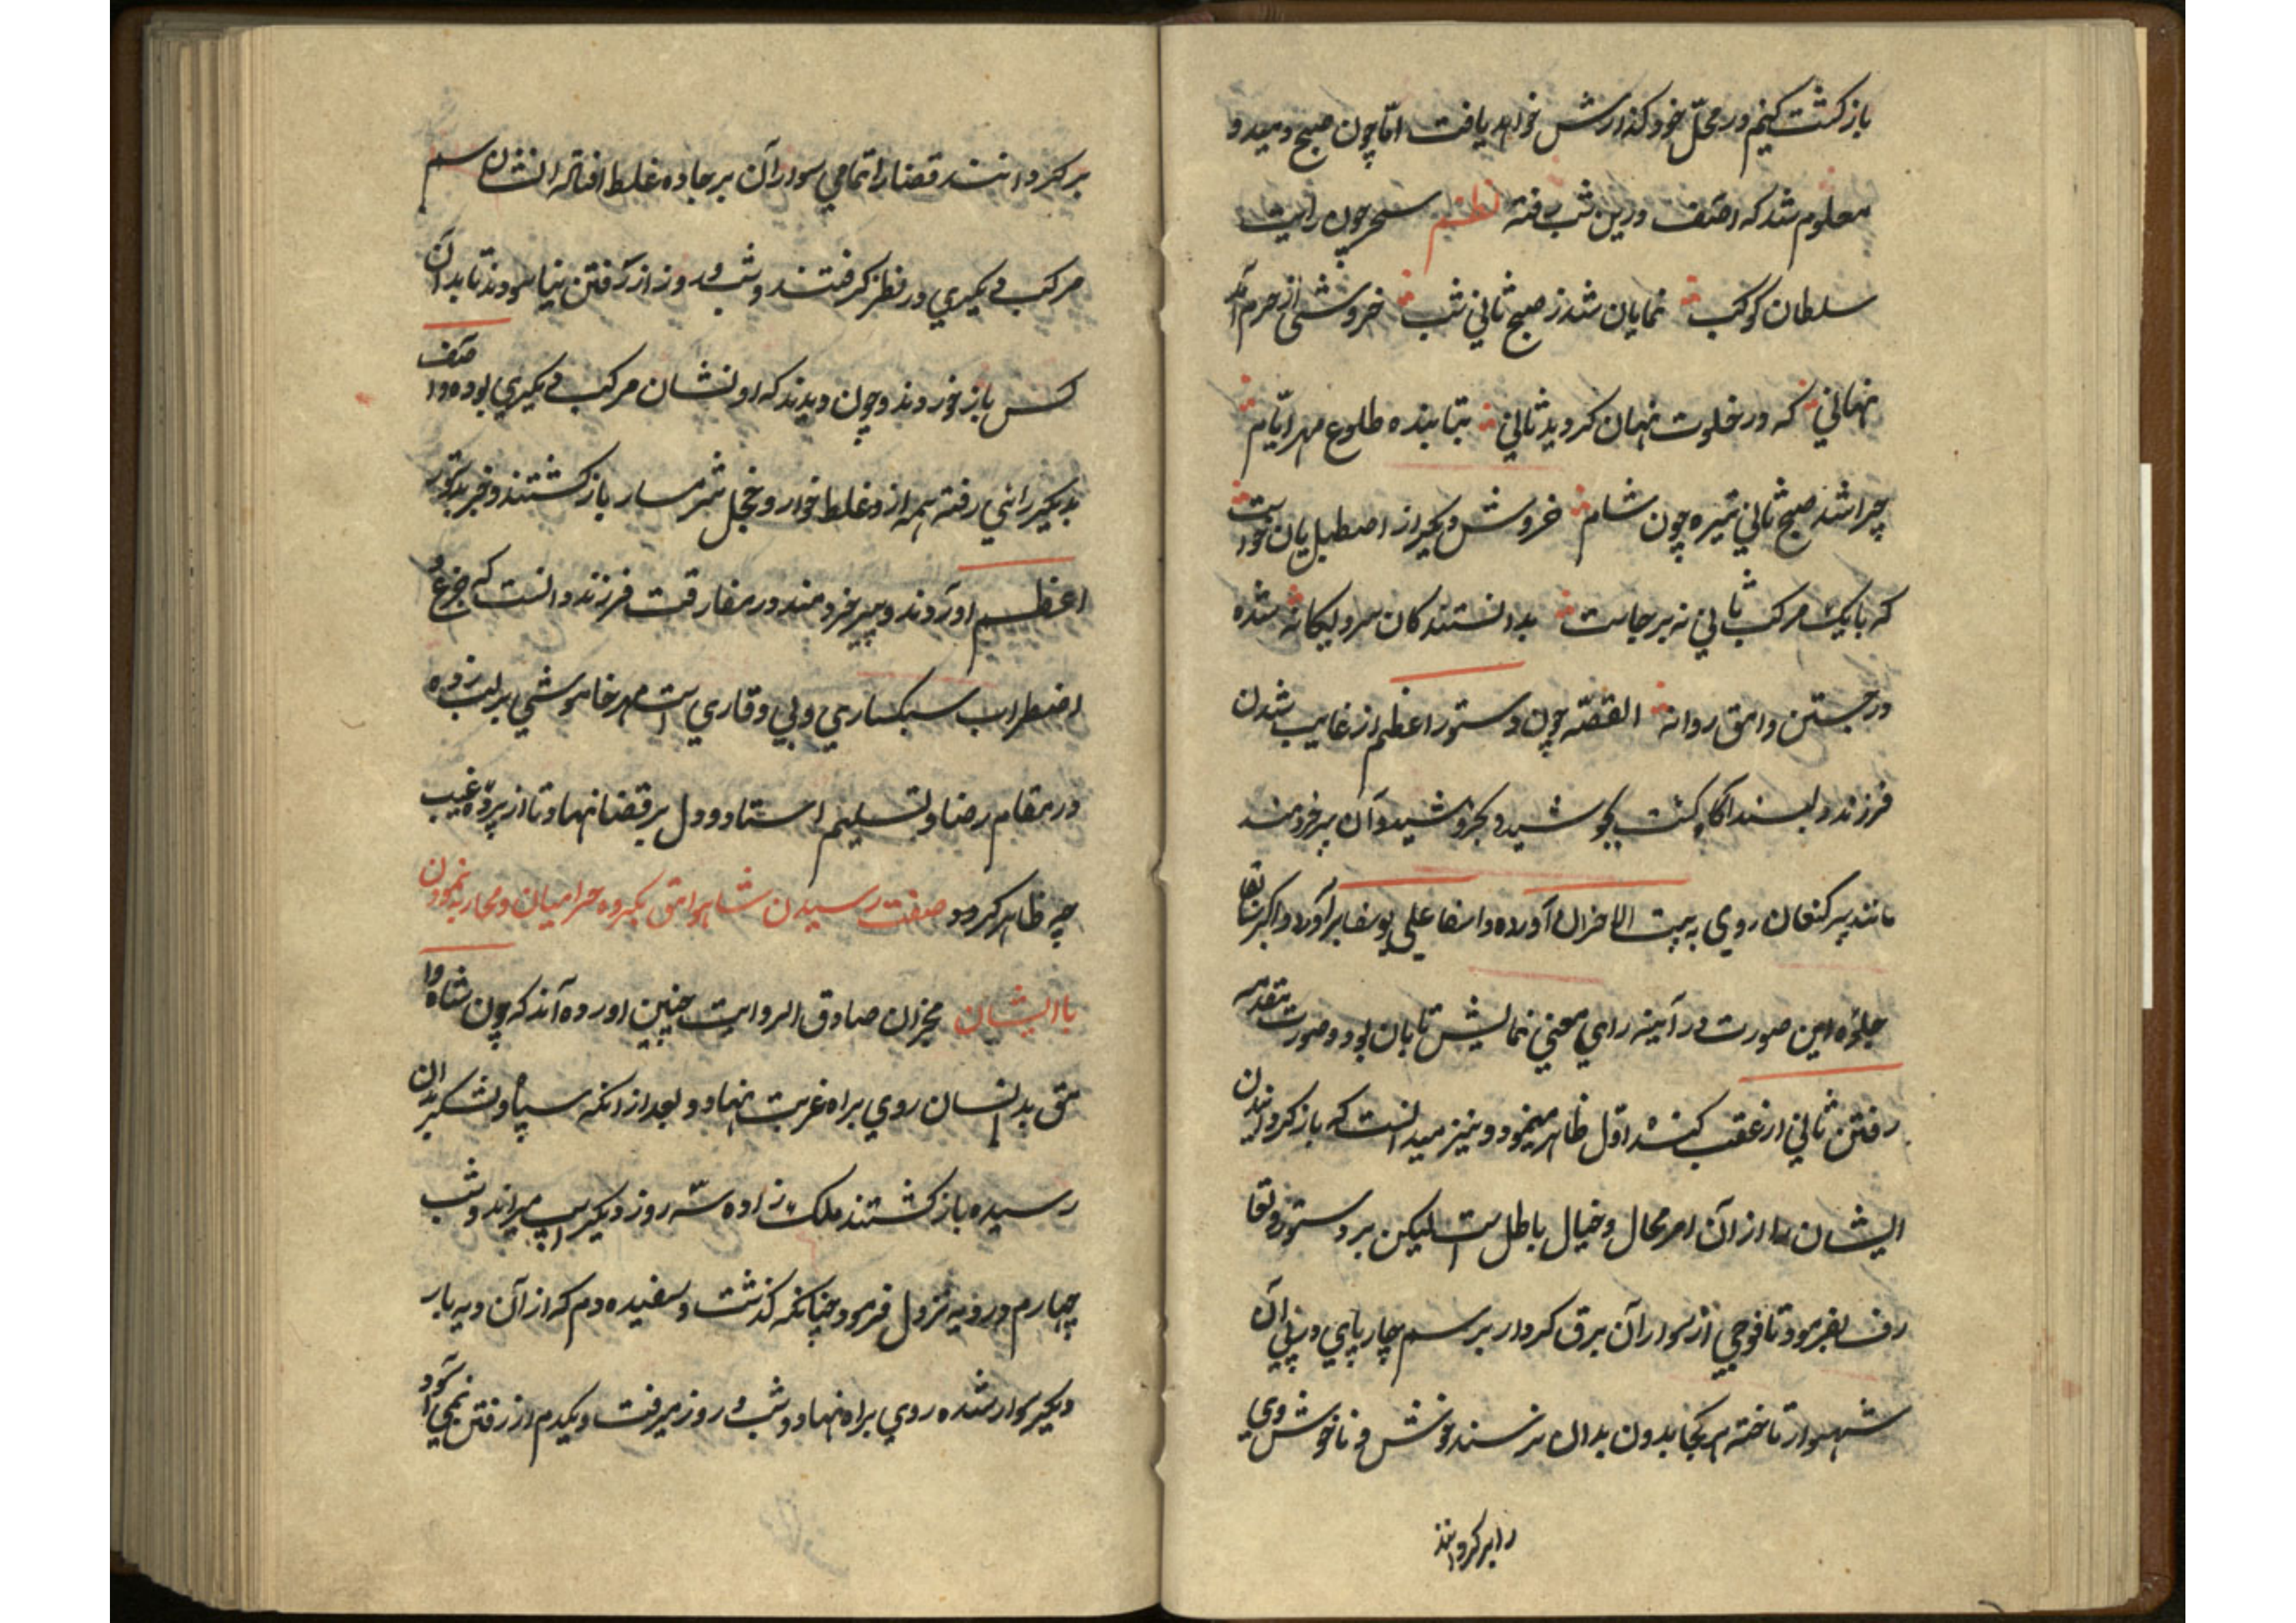 بازکشت کنیم در محلّ خود کذارش خواهد یافت امّا چون صبح دمید و
معلوم شد که آصف درین شب رفته نظم سحر چون رایت
سلطان کوکب نمایان شد ز صبح ثانی شب خروشی از حرم آمد
نهانی که در خلوت نهان کردید ثانی بتابنده طلوع مهر ایّام
چرا شد صبح ثانی تیره چون شام خروش دیکر از اصطبل یان خواست
که بایک مرکب ثانی نه بر جاست بدانستند کان سرو یکانه شده
در جستن وامق روانه القصّه چون دستور اعظم از غایب شدن
فرزند دلبند آکاه کشت بجوشید و بخروشید و آن پیر خردمند
مانند پیر کنعان روی به بیت الاحزان آورده وا اسفا علی یوسف برآورد و اکرچه
جلوه این صورت در آیینه رای معنی نمایش تابان بود و صورت
رفتن ثانی از عقب اوّل ظاهر مینمود و نیز میدانست که باز کردانیدن
ایشان را از آن امر محال و خیال باطل است لیکن بر دستور
بفرمود تا فوجی از سواران برق کردار بر سم چارپای در پی آن
شهسوار تاخته هر کجا بدون بدان برسند خوش و ناخوش وی
را برکردانند
برکردانند قضا را تمامی سواران بر جاده غلط افتاده نشان سم
مرکب دیکری در نظر کرفتند و شب و روز از رفتن نیاسودند تا بدان
کس باز خوردند و چون دیدند که او نشان مرکب دیکری بوده و آصف
بدیکر راهی رفته همه از غلط خوار و خجل شرمسار باز کشتند و خبر بدستور
اعظم اوردند و پیر خردمند در مفارقت فرزند دانست که جزع و
اضطراب سبکساری و بی وقاری است مهر خاموشی بر لب زده
در مقام رضا و تسلیم استاد و دل بر قضا نهاد تا از پرده غیب
چه ظاهر کردد صفت رسیدن شاه وامق بکروه حرامیان و محاربه نمودن
با ایشان مخبران صادق الروایت چنین اورده آند که چون شاه وا
مق بدانسان روی براه غربت نهاد و بعد از انکه سپاه و لشکر بدان
رسیده باز کشتند ملک زاده سه روز دیکر اسپ میراند و شب
چهارم در ویه نزول فرمود چنانکه کذشت و سفیده دم که از آن دیه بار
دیکر سوار شده روی براه نهاد و شب و روز میرفت و یکدم از رفتن نمی آسود